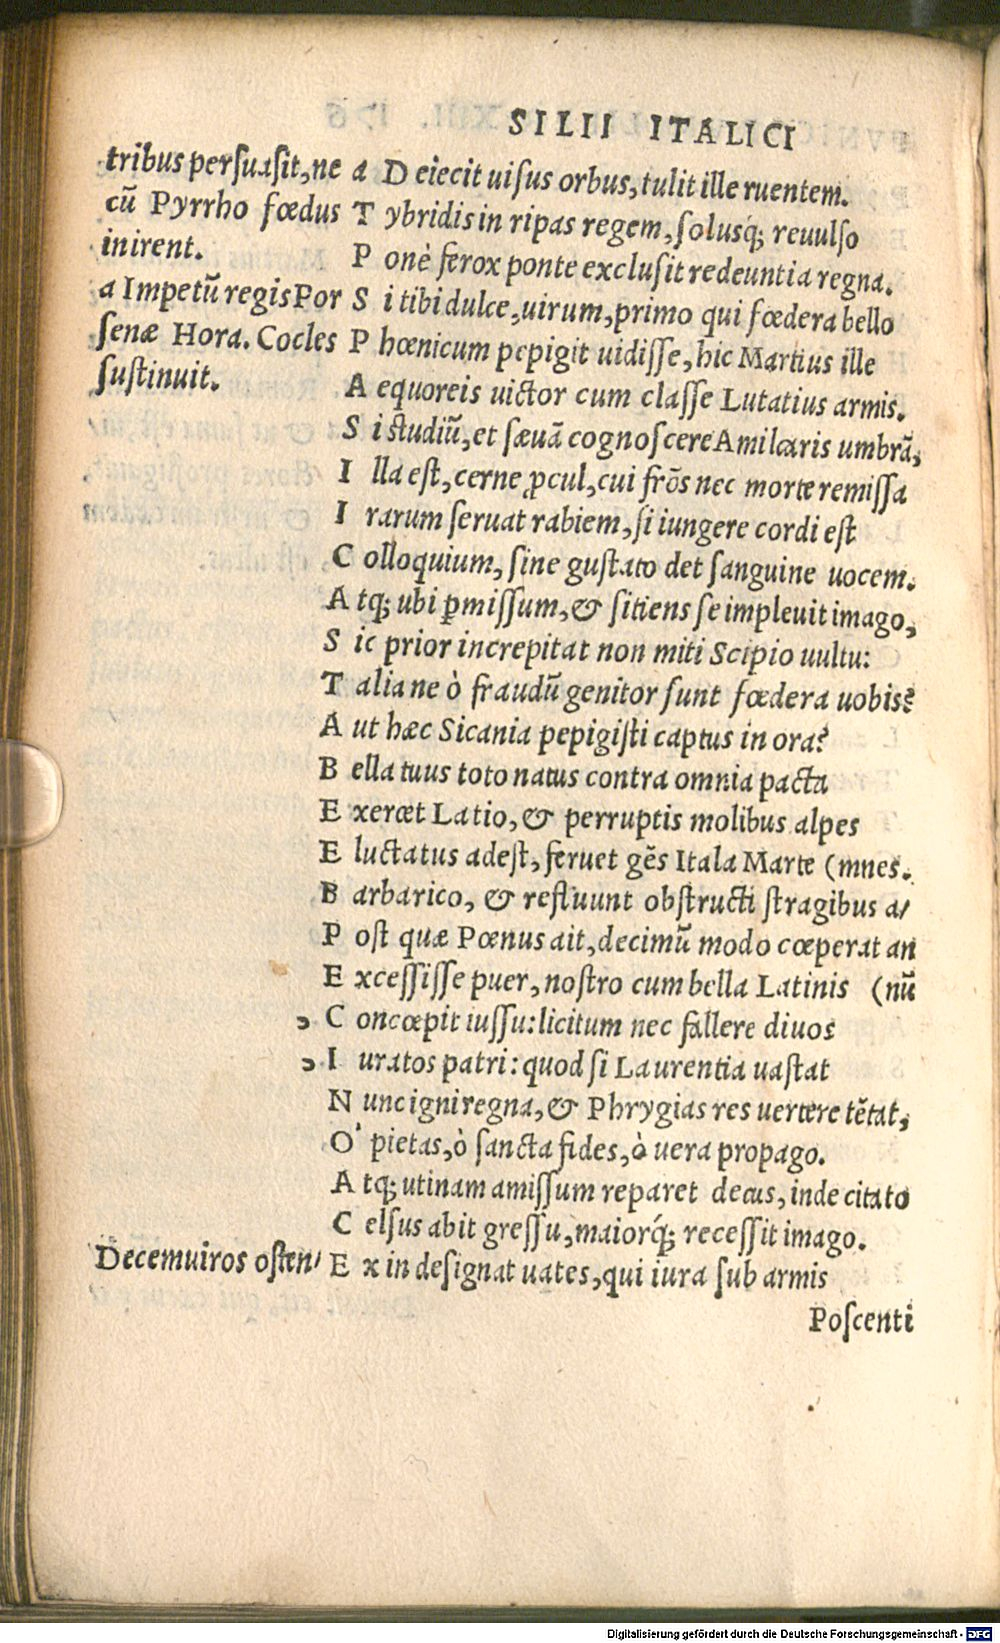 SILII ITALICI
tribus persuasit, ne
cũ Pyrrho fœdus
inirent.
a Impetũ regis Por
senæ Hora. Cocles
sustinuit.
a D eiecit uisus orbus, tulit ille ruentem.
T ybridis in ripas regem, solusq; reuulso
P onè ferox ponte exclusit redeuntia regna.
S i tibi dulce, uirum, primo qui fœdera bello
P hœnicum pepigit uidisse, hic Martius ille
A equoreis uictor cum classe Lutatius armis.
S i studiũ, et sæuã cognoscere Amilcaris umbrã,
I lla est, cerne ꝓcul, cui frõs nec morte remissa
I rarum seruat rabiem, si iungere cordi est
C olloquium, sine gustato det sanguine uocem.
A tq; ubi ꝑmissum, & sitiens se impleuit imago,
S ic prior increpitat non miti Scipio uultu:
T aliane ò fraudũ genitor sunt fœdera uobis?
A ut hæc Sicania pepigisti captus in ora?
B ella tuus toto natus contra omnia pacta
E xercet Latio, & perruptis molibus alpes
E luctatus adest, feruet gẽs Itala Marte (mnes.
B arbarico, & refluunt obstructi stragibus a/
P ost quæ Pœnus ait, decimũ modo cœperat an
E xcessisse puer, nostro cum bella Latinis (nũ
ɔ C oncœpit iussu: licitum nec fallere diuos
ɔ I uratos patri: quod si Laurentia uastat
N unc igni regna, & Phrygias res uertere tẽtat,
O' pietas, ò sancta fides, ò uera propago.
A tq; utinam amissum reparet decus, inde citato
C elsus abit gressu, maiorq́; recessit imago.
Decemuiros osten/
E x in designat uates, qui iura sub armis
Poscenti
Digitalisierung gefördert durch die Deutsche Forschungsgemeinschaft - DFG